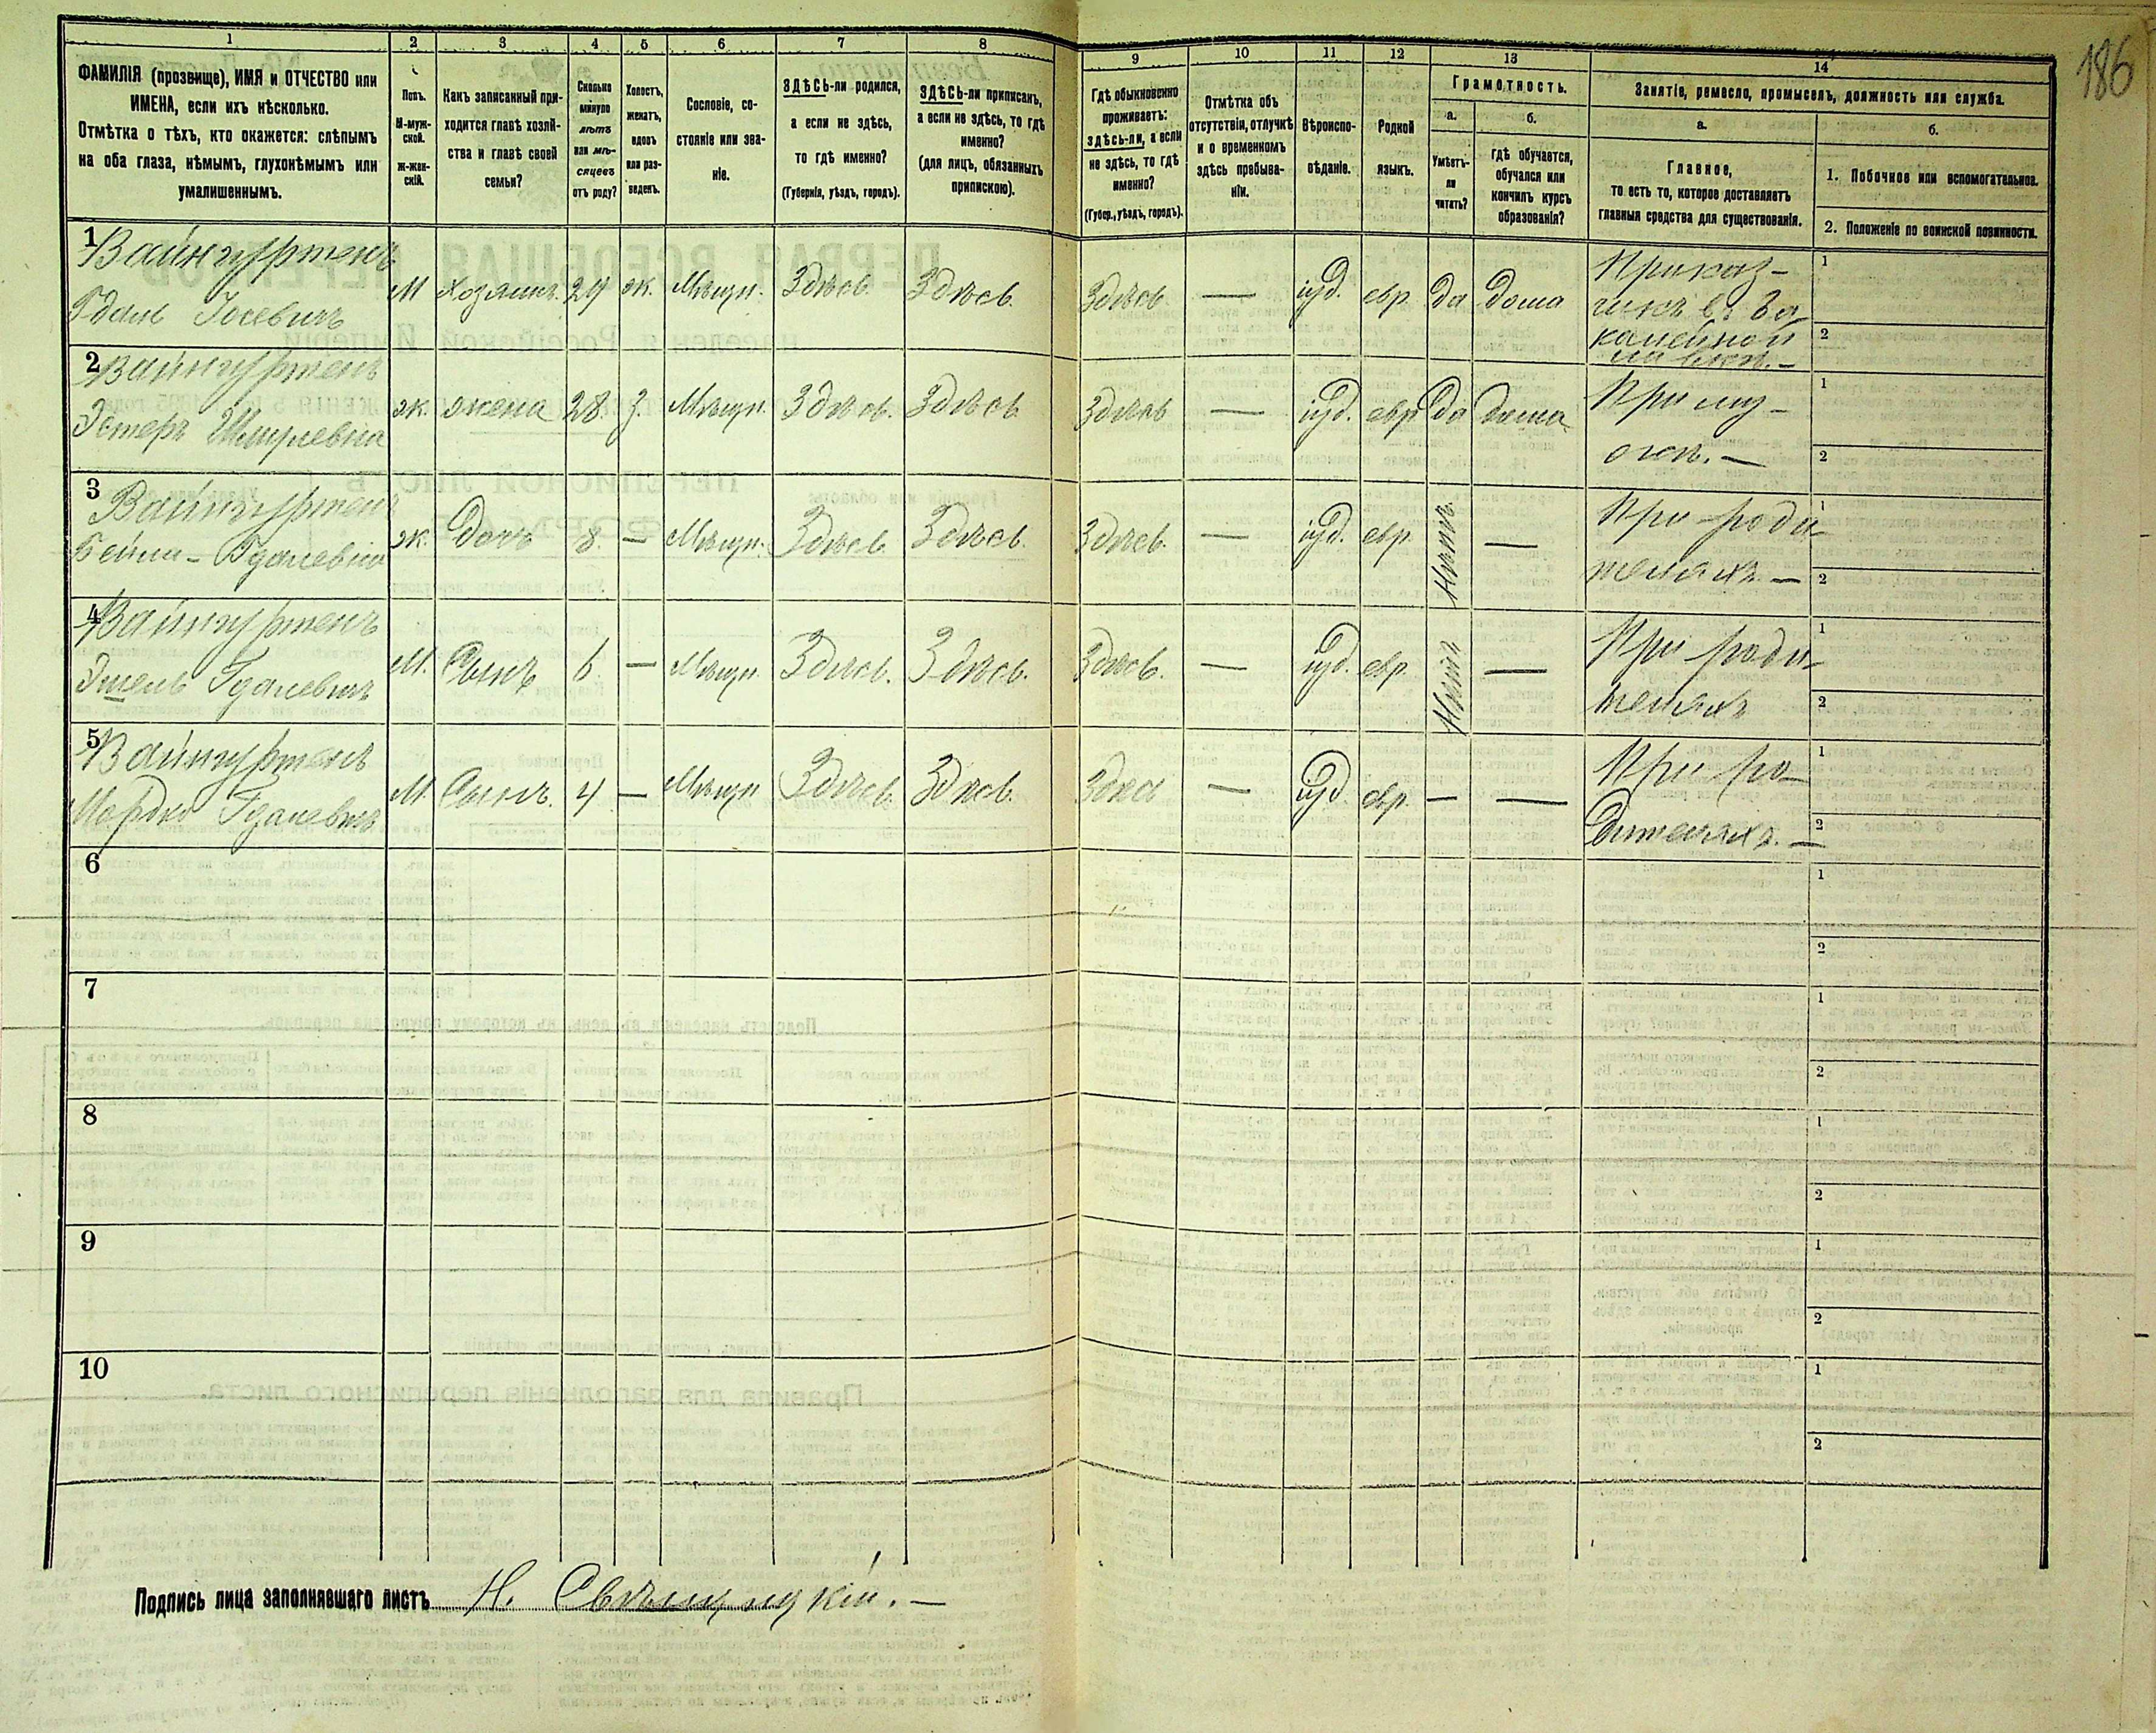 186
1 2 3 4 5 6 7 8 9 10 11 12 13 14
ФАМИЛІЯ (прозвище), ИМЯ и ОТЧЕСТВО или
ИМЕНА, если ихъ нѣсколько.
Отмѣтка о тѣхъ, кто окажется: слѣпымъ
на оба глаза, нѣмымъ, глухонѣмымъ или
умалишеннымъ.
Полъ.
М-муж-
ской.
ж-жен-
скій.
Какъ записанный при-
ходится главѣ хозяй-
ства и главѣ своей
семьи?
Сколько
минуло
лѣтъ
или мѣ-
сяцевъ
отъ роду?
Холостъ,
женатъ,
вдовъ
или раз-
веденъ.
Сословіе, со-
стояніе или зва-
ніе.
ЗДѢСЬ-ли родился,
а если не здѣсь,
то гдѣ именно?
(Губернія, уѣздъ, городъ).
ЗДѢСЬ-ли приписанъ,
а если не здѣсь, то гдѣ
именно?
(для лицъ, обязанныхъ
припискою).
Гдѣ обыкновенно
проживаетъ:
здѣсь-ли, а если
не здѣсь, то гдѣ
именно?
(Губер., уѣздъ, городъ).
Отмѣтка объ
отсутствіи, отлучкѣ
и о временномъ
здѣсь пребыва-
ніи.
Вѣроиспо-
вѣданіе.
Родной
языкъ.
Грамотность.
а.
Умѣетъ-
ли
читать?
б.
Гдѣ обучается,
обучался или
кончилъ курсъ
образованія?
Занятіе, ремесло, промыселъ, должность или служба.
а.
Главное,
то есть то, которое доставляетъ
главныя средства для существованія.
б.
1. Побочное или вспомогательное.
2. Положеніе по воинской повинности.
1 Вайнгуртенъ
Гдаль Іосевичъ
М хозяинъ 29 ж. Мѣщ. Здѣсь Здѣсь. Здѣсь — іуд. евр. да дома
Приказ-
чикъ въ ба
калейной
лавкѣ. —
1
2
2 Вайнгуртенъ
Эстеръ Шмулевна
ж. жена 28. З. Мѣщ. Здѣсь. Здѣсь Здѣсь — іуд. евр да дома
При му-
жѣ. —
1
2
3 Вайнгуртенъ
Бейла- Гдалевна
ж. Дочь 8. — Мѣщ. Здѣсь Здѣсь. Здѣсь. — іуд. евр. Нѣтъ —
При роди-
теляхъ. —
1
2
4 Вайнгуртенъ
Гдалевичъ
М. Сынъ 6. — Мѣщ. Здѣсь. Здѣсь. Здѣсь. — іуд. евр. Нѣтъ —
При роди-
теляхъ
1
2
5 Вайнгуртенъ
Мордко Гдалевичъ
М. Сынъ. 4 — Мѣщ Здѣсь Здѣсь. Здѣсь — іуд евр. — —
При ро-
дителяхъ. —
1
2
6
1
2
7
1
2
8
1
2
9
1
2
10
1
2
Подпись лица заполнявшаго листъ Н.